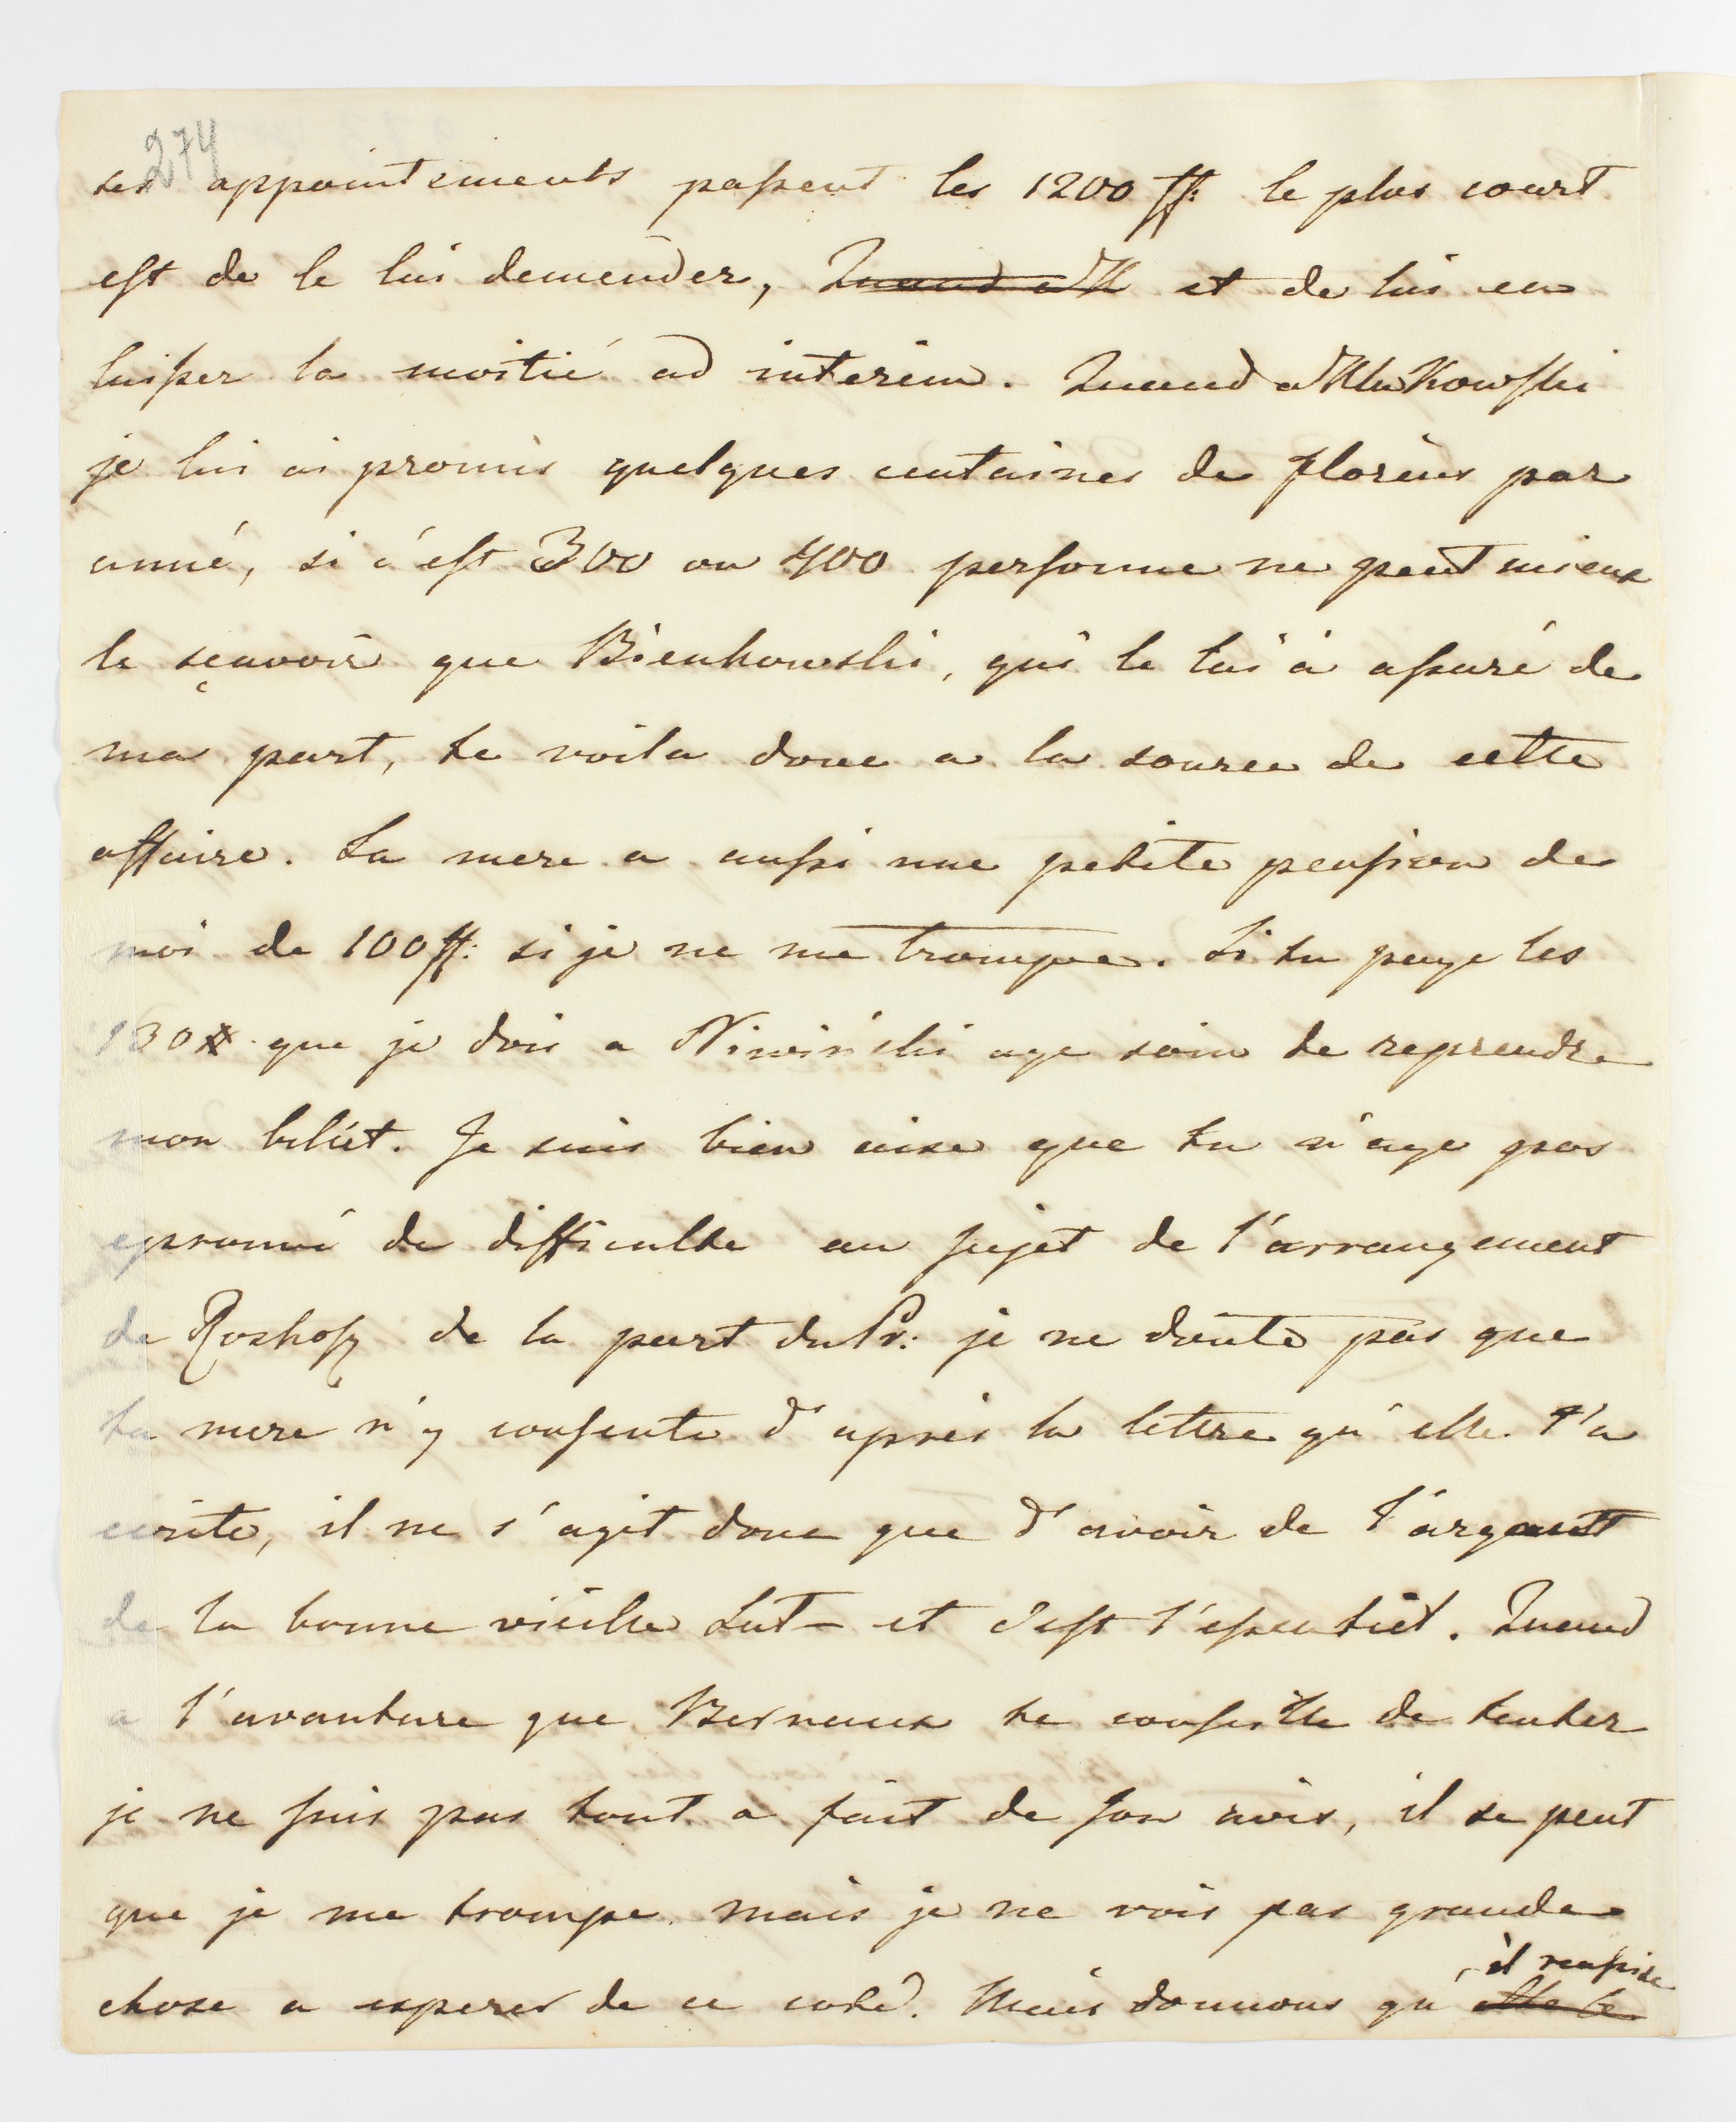 274
ses appointements passent les 1200 ff: le plus court
est de le lui demender, Quand a M et de lui en
laisser la moitié ad interim. Quand a Mlukowski
je lui ai promis quelques centaines de florins par
anné, si c'est 300 ou 400 personne ne peut mieux
le sçavoir que Bienkowski, qui le lui a assuré de
ma part, te voila donc a la source de cette
affaire. La mere a aussi une petite pension de
moi de 100 ff: si je ne me trompe. Si tu paye les
130# que je dois a Niwiński aye soin de reprendre
mon billiet. Je suis bien aise que tu n'aye pas
eprouvé de difficulte au sujet de l'arrangement
de Roskosz de la part du Pr: je ne doute pas que
ta mere n'y consente d'après la lettre qu'elle t'a
ecrite, il ne s'agit donc que d'avoir de l'argent
de la bonne vieille Lut– et c'est l'essentiel. Quand
a l'avanture que Bernaux te conseille de tenter
je ne suis pas tout a fait de son avis, il se peut
que je me trompe mais je ne vois pas grande
il reussisse
chose a esperer de ce coté. Mais donnons qu' elle le